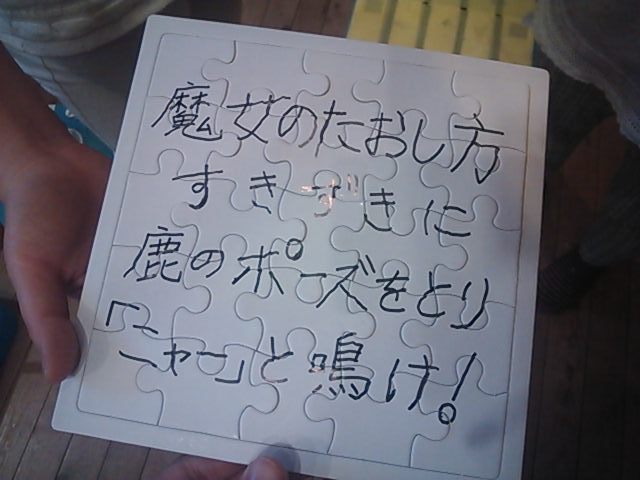 魔女のたおし方
すきずきに
鹿のポーズをとり
「ニャー」と鳴け!